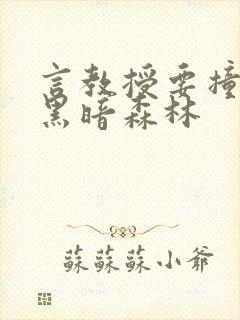 言教授要撞
黑暗森林
蘇蘇蘇小爺